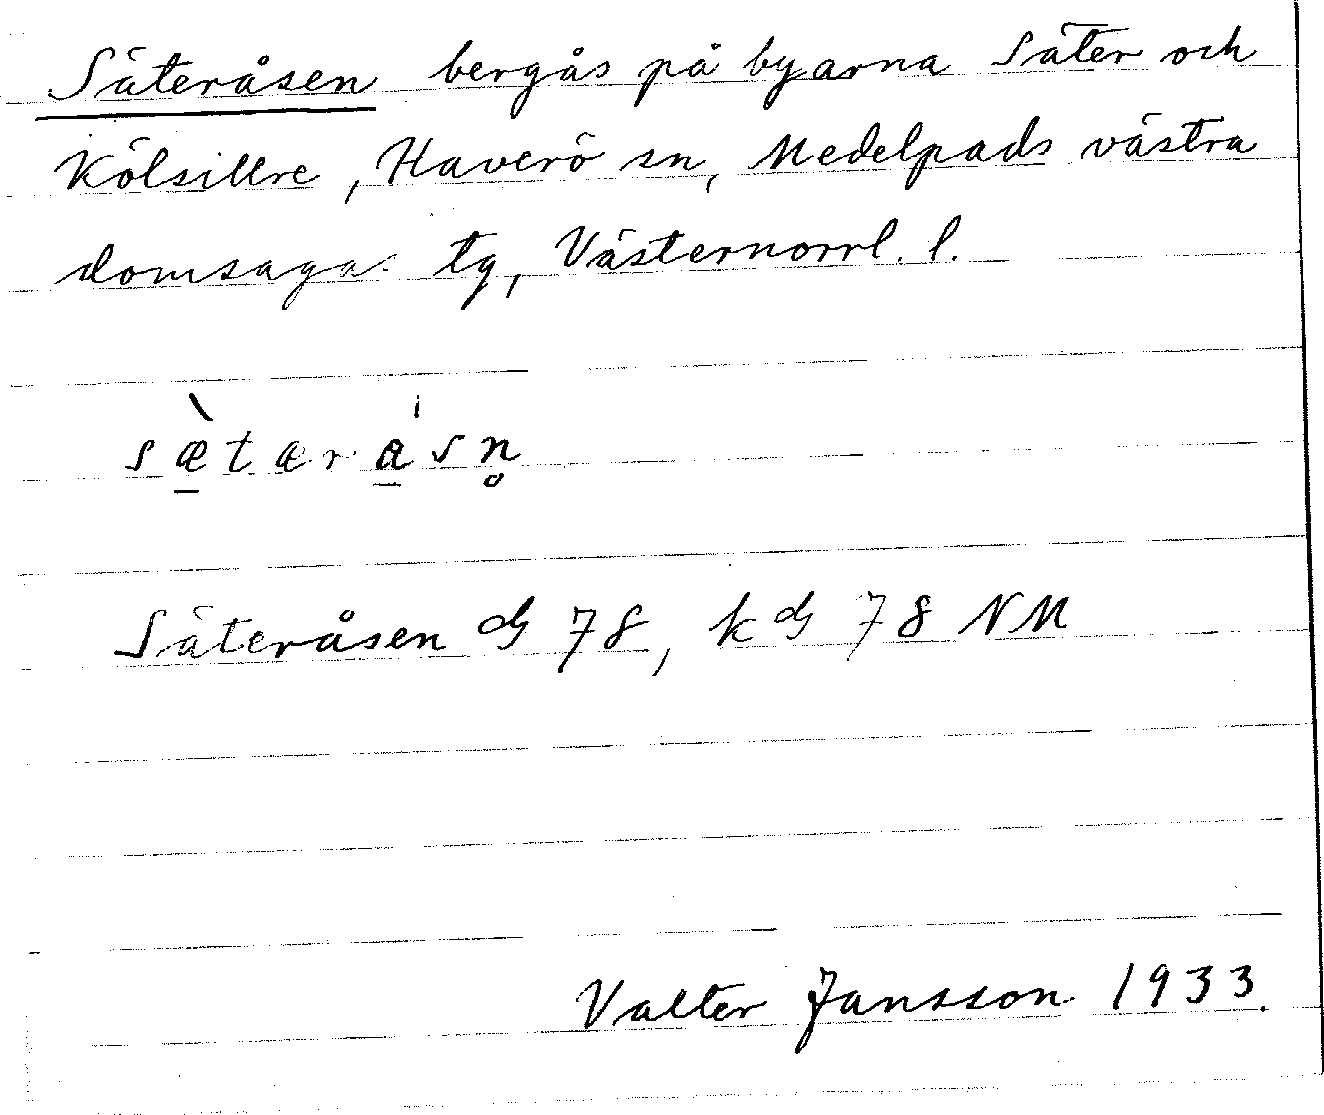 Säteråsen bergås på byarna Säter och
Kölsillre, Haverö sn, Medelpads västra
domsaga tg, Västernorrl. l.
sæ̠̀tæra̠ˈsn̥
Säteråsen 78, k 78 NM
Valter Jansson 1933.